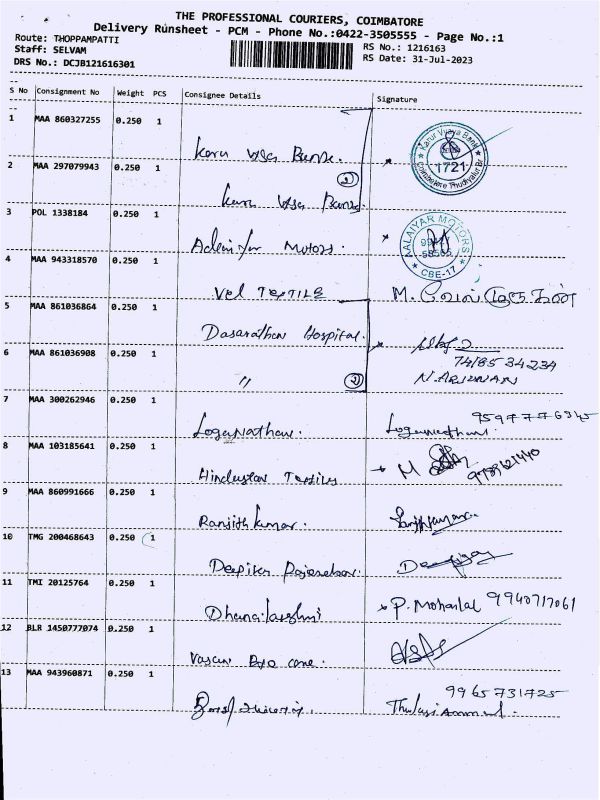 THE PROFESSIONAL COURIERS, COIMBATORE
Delivery Runsheet - PCM - Phone No.:0422-3505555 - Page No.:1
Route: THOPPAMPATTI
RS No.: 1216163
Staff: SELVAM
RS Date: 31-Jul-2023
DRS No.: DCJB121616301
S No Consignment No Weight PCS Consignee Details Signature
1 MAA 860327255 0.250 1
Karu Vysa Bank.
Karur Vysya Bank
1721
Coimbatore Thudiyalur Br
2 MAA 297079943 0.250 1
②
Karu Vysa Bank
3 POL 1338184 0.250 1
Motors.
AALAIYAR MOTORS
CBE-17
4 MAA 943318570 0.250 1
Vel TEXTILE M. வேல் முருகன்
5 MAA 861036864 0.250 1
Dasarathan Hospital.
6 MAA 861036908 0.250 1
74185 34234
" ② N. ARJUNAN
7 MAA 300262946 0.250 1
Loganathan. Loganathan.
8 MAA 103185641 0.250 1
Hindustan M 9789621440
9 MAA 860991666 0.250 1
Ranjith kumar.
10 TMG 200468643 0.250 1
Deepika
11 TMI 20125764 0.250 1
P. Mohanlal 9940717061
12 BLR 1450777074 0.250 1
Vasan Eye care.
13 MAA 943960871 0.250 1
9965731725
Thulasiammal.